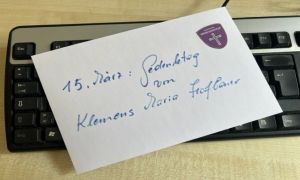 15. März: Gedenktag
von
Klemens Maria Hofbauer